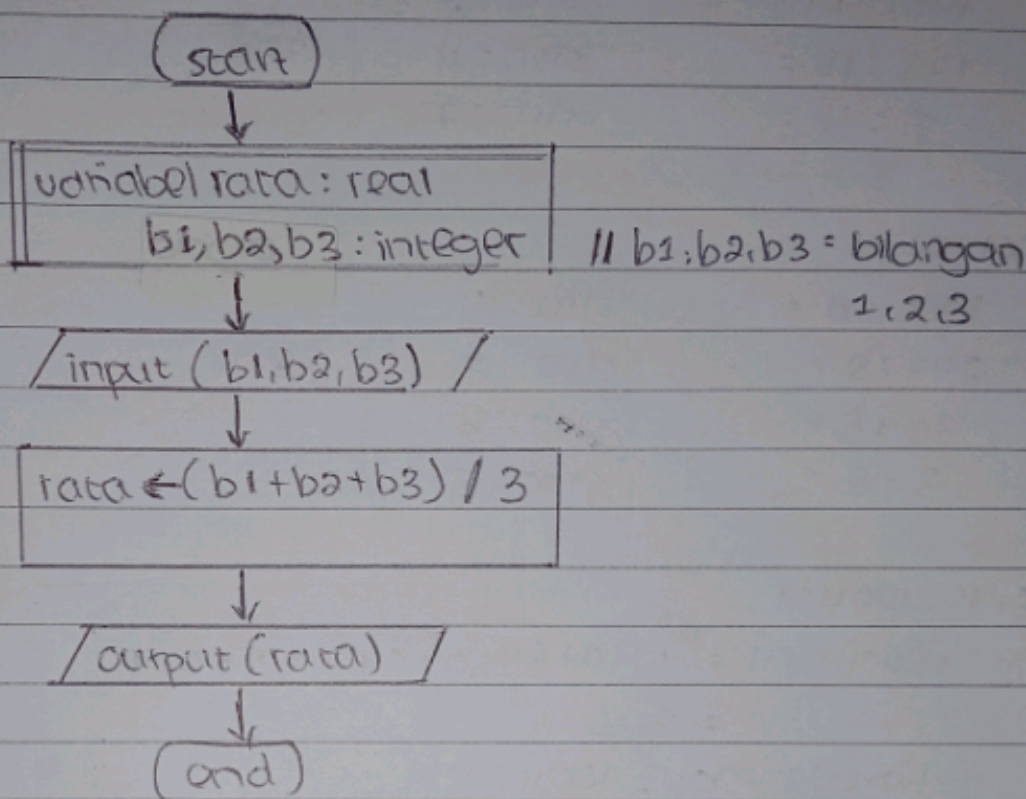 start
variabel rata : real
b1, b2, b3 : integer
// b1, b2, b3 = bilangan
1, 2, 3
input (b1, b2, b3)
rata ← (b1+b2+b3) / 3
output (rata)
end